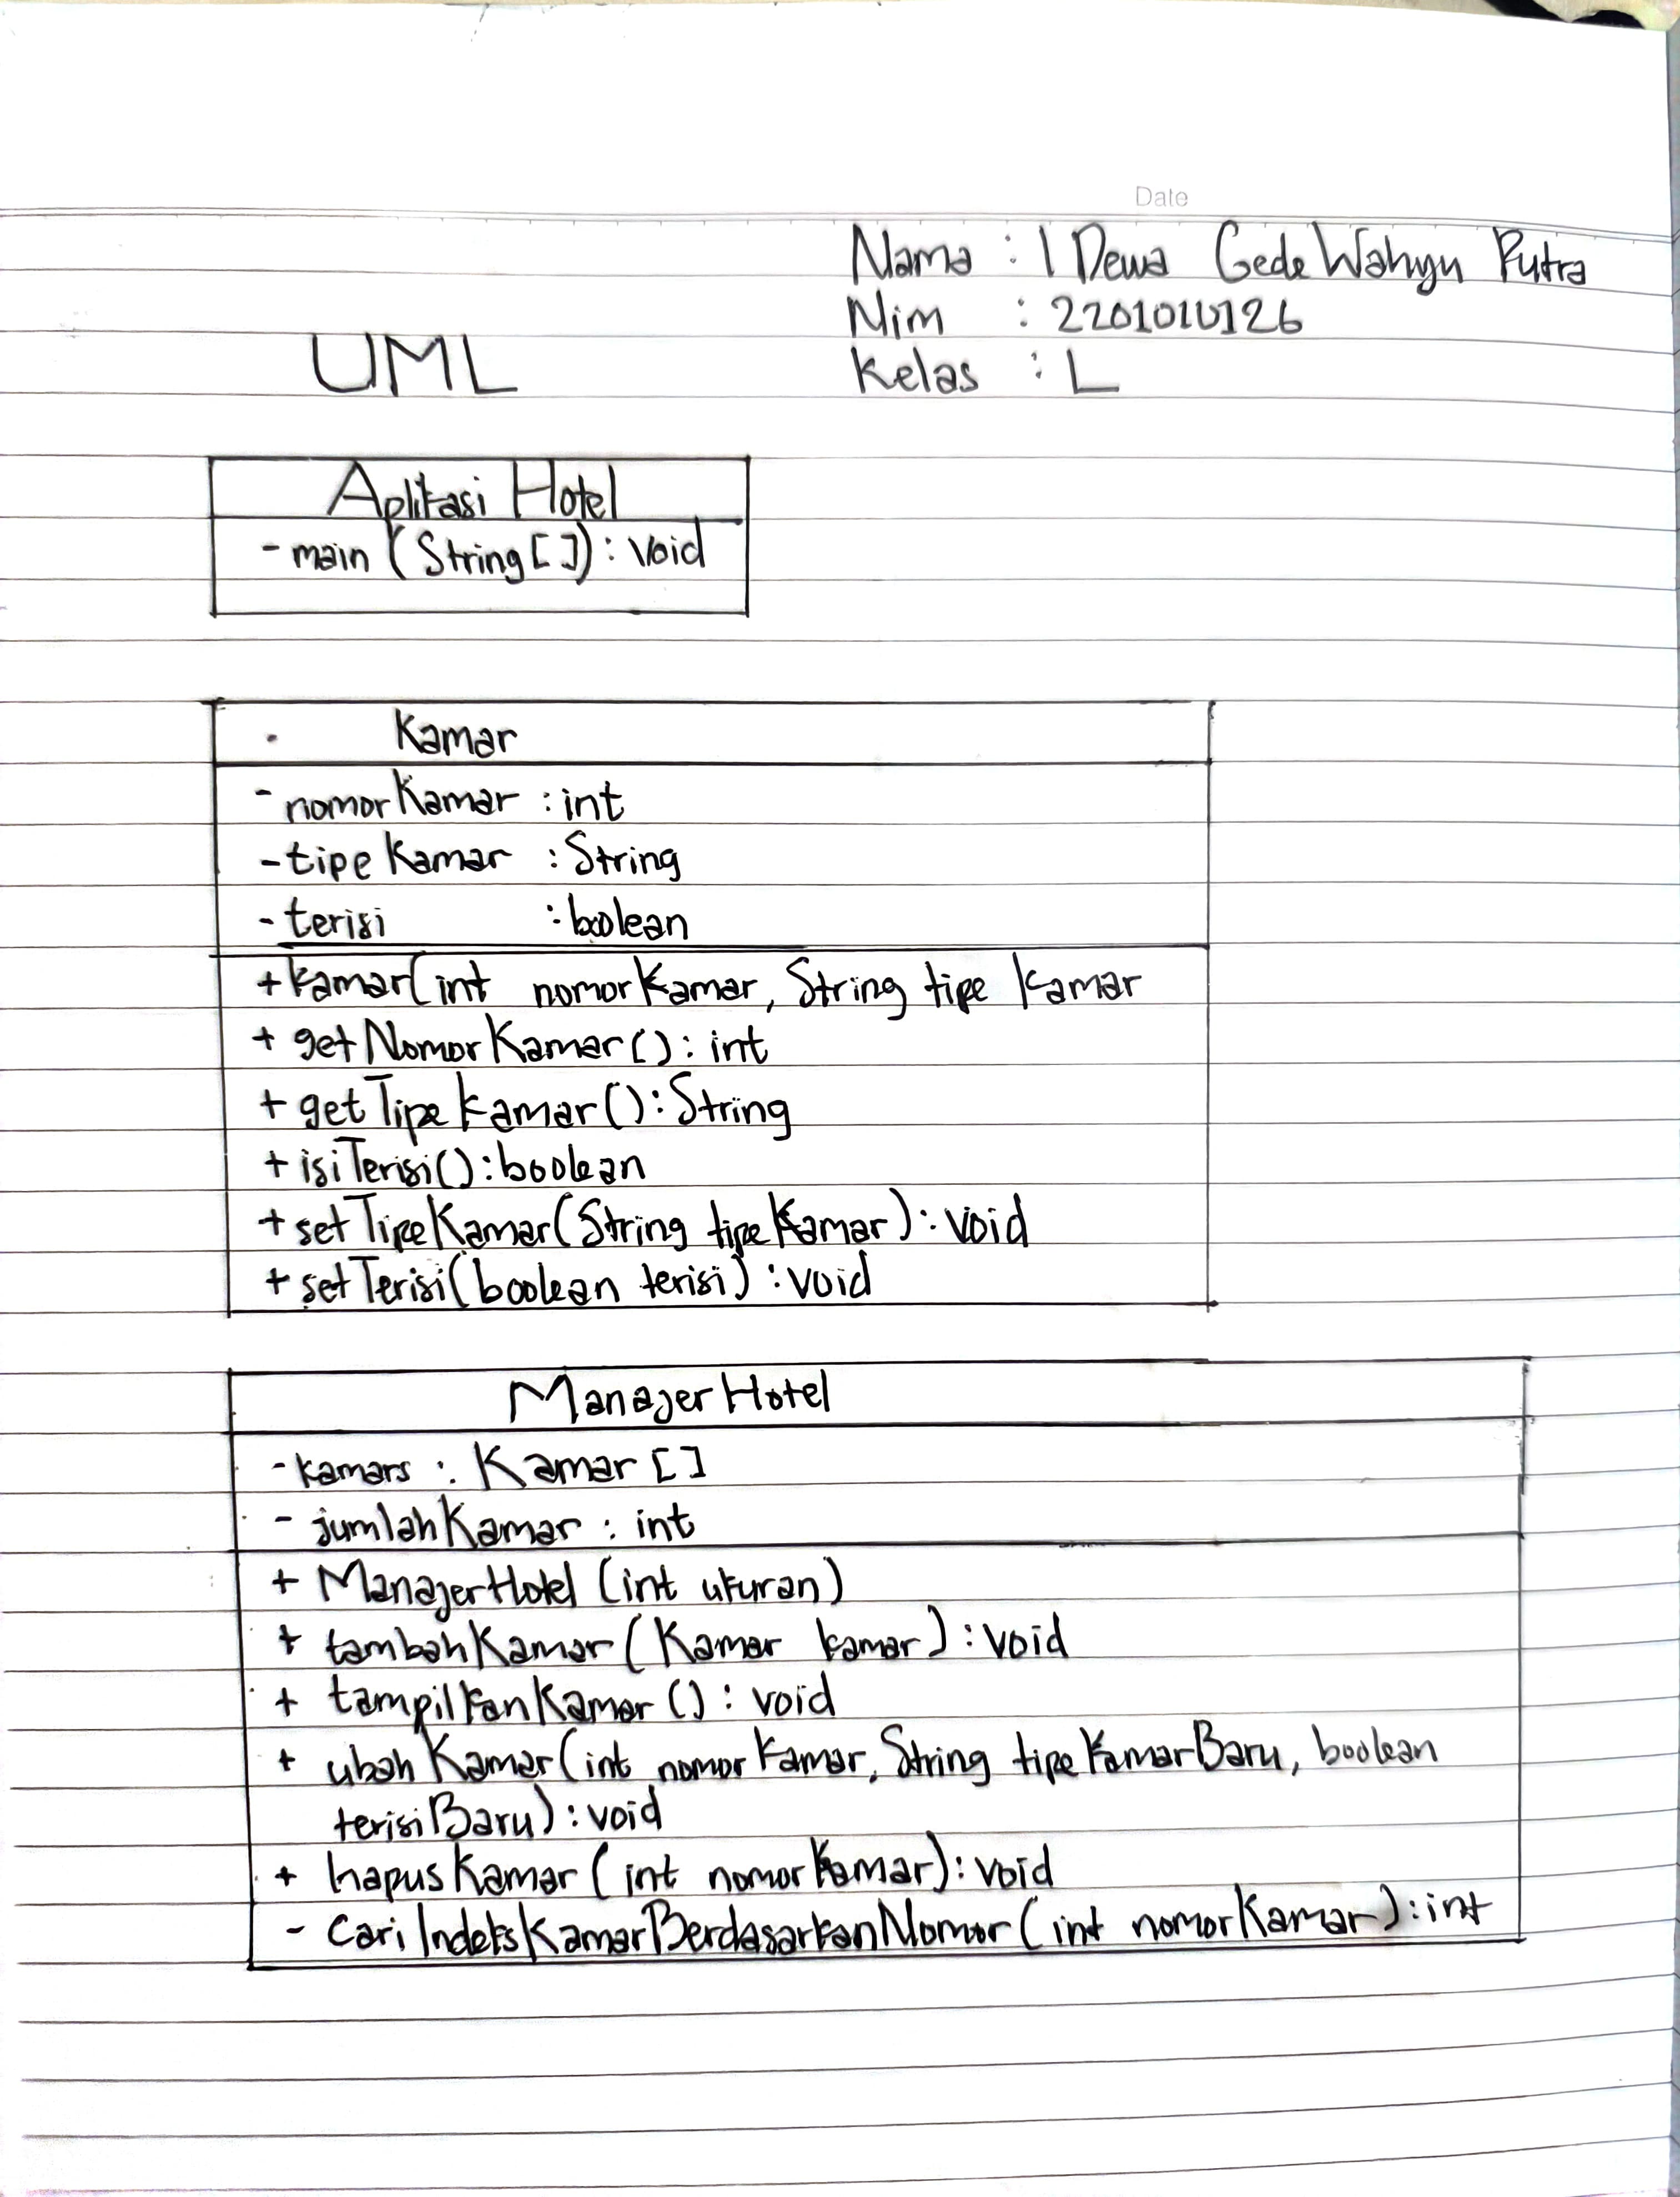 Date
Nama : I Dewa Gede Wahyu Putra
Nim : 2201010126
Kelas : L
UML
Aplikasi Hotel
- main (String[]) : void
Kamar
- nomorKamar : int
- tipe Kamar : String
- terisi : boolean
+ kamar(int nomorKamar, String tipe Kamar
+ getNomorKamar() : int
+ getTipeKamar() : String
+ isiTerisi() : boolean
+ setTipeKamar(String tipeKamar) : void
+ setTerisi(boolean terisi) : void
ManajerHotel
- kamars : Kamar []
- jumlahKamar : int
+ ManajerHotel (int ukuran)
+ tambahKamar (Kamar kamar) : void
+ tampilkanKamar () : void
+ ubahKamar (int nomorKamar, String tipeKamarBaru, boolean
terisiBaru) : void
+ hapusKamar (int nomorKamar) : void
- cariIndeksKamarBerdasarkanNomor (int nomorKamar) : int